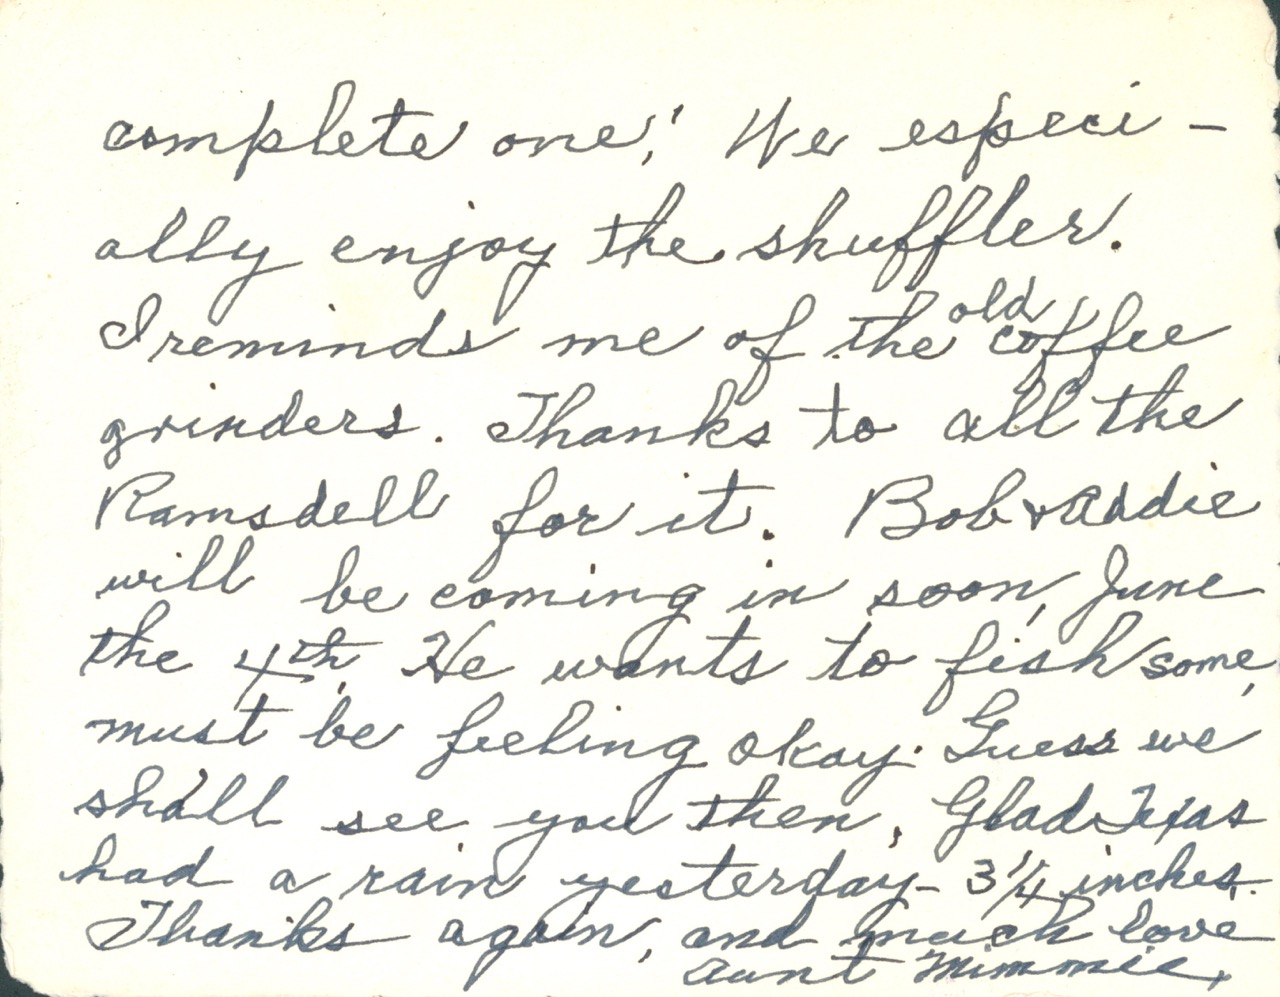 complete one! We especi-
ally enjoy the shuffler.
I reminds me of the old coffee
grinders. Thanks to all the
Ramsdell for it. Bob & Addie
will be coming in soon, June
the 4th. He wants to fish some,
must be feeling okay. Guess we
shall see you then. Glad Texas
had a rain yesterday - 3 1/4 inches.
Thanks again, and much love
Aunt Mimmie.